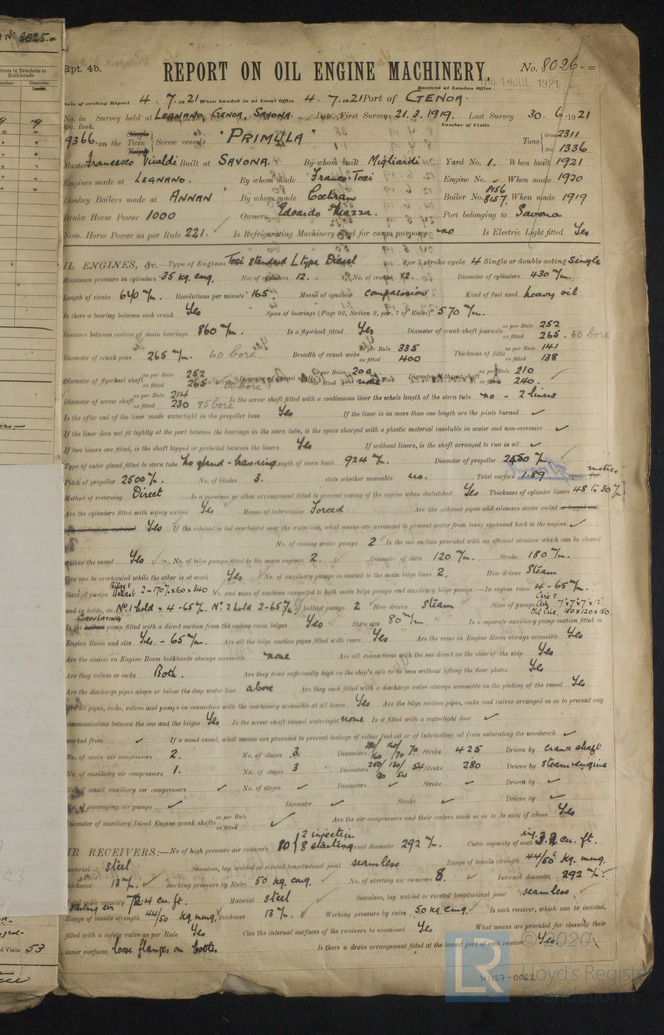 Rpt. 4b.
REPORT ON OIL ENGINE MACHINERY.
No. 8026
Received at London Office 14 JUL 1921
Date of writing Report 4. 7. 1921 When handed in at Local Office 4. 7. 1921 Port of GENOA.
No. in Survey held at LEGNANO, GENOA, SAVONA. Date, First Survey 21. 3. 1919. Last Survey 30. 6. 1921
Reg. Book. Number of Visits
9366. on the Twin Screw vessels "PRIMULA" Tons Gross 2311 Net 1336
Master Francesco Vivaldi Built at SAVONA. By whom built Migliardi Yard No. 1. When built 1921
Engines made at LEGNANO. By whom made Franco Tosi Engine No. - When made 1920
Donkey Boilers made at ANNAN By whom made Cochran Boiler No. 8156 8157. When made 1919
Brake Horse Power 1000 Owners Edoardo Mazza. Port belonging to Savona
Nom. Horse Power as per Rule 221. Is Refrigerating Machinery fitted for cargo purposes no Is Electric Light fitted Yes
OIL ENGINES, &c. Type of Engines Tosi standard L type Diesel 2 or 4 stroke cycle 4 Single or double acting Single
Maximum pressure in cylinders 35 kg. cmq. No. of cylinders 12. No. of cranks 12. Diameter of cylinders 430 m/m.
Length of stroke 640 m/m. Revolutions per minute 165. Means of ignition compression Kind of fuel used heavy oil
Is there a bearing between each crank Yes Span of bearings (Page 92, Section 2, par. 7 of Rules) 570 m/m.
Distance between centres of main bearings 860 m/m. Is a flywheel fitted Yes Diameter of crank shaft journals as per Rule 252 as fitted 265. 60 bore
Diameter of crank pins 265 m/m. 60 bore. Breadth of crank webs as per Rule 335 as fitted 400 Thickness of ditto as per Rule 141 as fitted 138
Diameter of flywheel shaft as per Rule 252 as fitted 265 as per Rule 200 as per Rule 210 as fitted 240
Diameter of screw shaft as per Rule 214 as fitted 230 85 bore Is the screw shaft fitted with a continuous liner the whole length of the stern tube no - 2 liners
Is the after end of the liner made watertight in the propeller boss Yes If the liner is in more than one length are the joints burned
If the liner does not fit tightly at the part between the bearings in the stern tube, is the space charged with a plastic material insoluble in water and non-corrosive
If two liners are fitted, is the shaft lapped or protected between the liners Yes If without liners, is the shaft arranged to run in oil
Type of outer gland fitted to stern tube Length of stern bush 924 m/m. Diameter of propeller
Pitch of propeller 2500 m/m. No. of blades 3. state whether moveable no. Total surface 1.89
Method of reversing Direct Is a governor or other arrangement fitted to prevent racing of the engine when declutched Yes Thickness of cylinder liners 48 to 30 m/m
Are the cylinders fitted with safety valves Yes Means of lubrication Forced Are the exhaust pipes and silencers water cooled
Yes If the exhaust is led overboard near the waterline, what means are arranged to prevent water from being syphoned back to the engine
No. of cooling water pumps 2 Is the sea suction provided with an efficient strainer which can be cleared
within the vessel Yes No. of bilge pumps fitted to the main engines 2. Diameter of ditto 120 m/m. Stroke 180 m/m.
Can one be overhauled while the other is at work Yes No. of auxiliary pumps connected to the main bilge lines 2. How driven Steam
Sizes of pumps No. and sizes of suctions connected to both main bilge pumps and auxiliary bilge pumps:-In engine room 4 - 65 m/m.
and in holds, etc. No. 1 hold - 4 - 65 m/m. No. 2 hold 2 - 65 m/m. No. of ballast pumps 2 How driven Steam Sizes of pumps
Is the ballast pump fitted with a direct suction from the engine room bilges Yes State size 80 m/m. Is a separate auxiliary pump suction fitted in
Engine Room and size Yes. - 65 m/m. Are all the bilge suction pipes fitted with roses Yes Are the roses in Engine Room always accessible Yes
Are the sluices on Engine Room bulkheads always accessible none Are all connections with the sea direct on the skin of the ship Yes
Are they valves or cocks Both. Are they fixed sufficiently high on the ship's side to be seen without lifting the floor plates Yes
Are the discharge pipes above or below the deep water line above Are they each fitted with a discharge valve always accessible on the plating of the vessel Yes
Are all pipes, cocks, valves and pumps in connection with the machinery accessible at all times Yes Are the bilge suction pipes, cocks and valves arranged so as to prevent any
communication between the sea and the bilges Yes Is the screw shaft tunnel watertight none Is it fitted with a watertight door
worked from If a wood vessel, what means are provided to prevent leakage of either fuel oil or of lubricating oil from saturating the woodwork
No. of main air compressors 2. No. of stages 3. Diameters Stroke 425 Driven by crank shaft
No. of auxiliary air compressors 1. No. of stages 3 Diameters Stroke 280 Driven by steam engine
No. of small auxiliary air compressors No. of stages Diameters Stroke Driven by
No. of scavenging air pumps Diameter Stroke Driven by
Diameter of auxiliary Diesel Engine crank shafts as per Rule as fitted Are the air compressors and their coolers made so as to be easy of access Yes
AIR RECEIVERS:- No. of high pressure air receivers 10 2 injection 8 starting diameter 292 m/m. Cubic capacity of each inj. 3.2 cu. ft.
material steel Seamless, lap welded or riveted longitudinal joint seamless Range of tensile strength 44/50 kg. mmq.
thickness 13 m/m. working pressure by Rules 50 kg. cmq. No. of starting air receivers 8. Internal diameter 292 m/m.
Cubic capacity Material steel Seamless, lap welded or riveted longitudinal joint seamless
Range of tensile strength 44/50 kg. mmq. thickness 13 m/m. Working pressure by rules 50 kg cmq. Is each receiver, which can be isolated,
fitted with a safety valve as per Rule Yes Can the internal surfaces of the receivers be examined Yes What means are provided for cleaning their
inner surfaces loose flanges on bottles Is there a drain arrangement fitted at the lowest part of each receiver Yes.
W1127-0062
© 2020
Lloyd's Register
Foundation